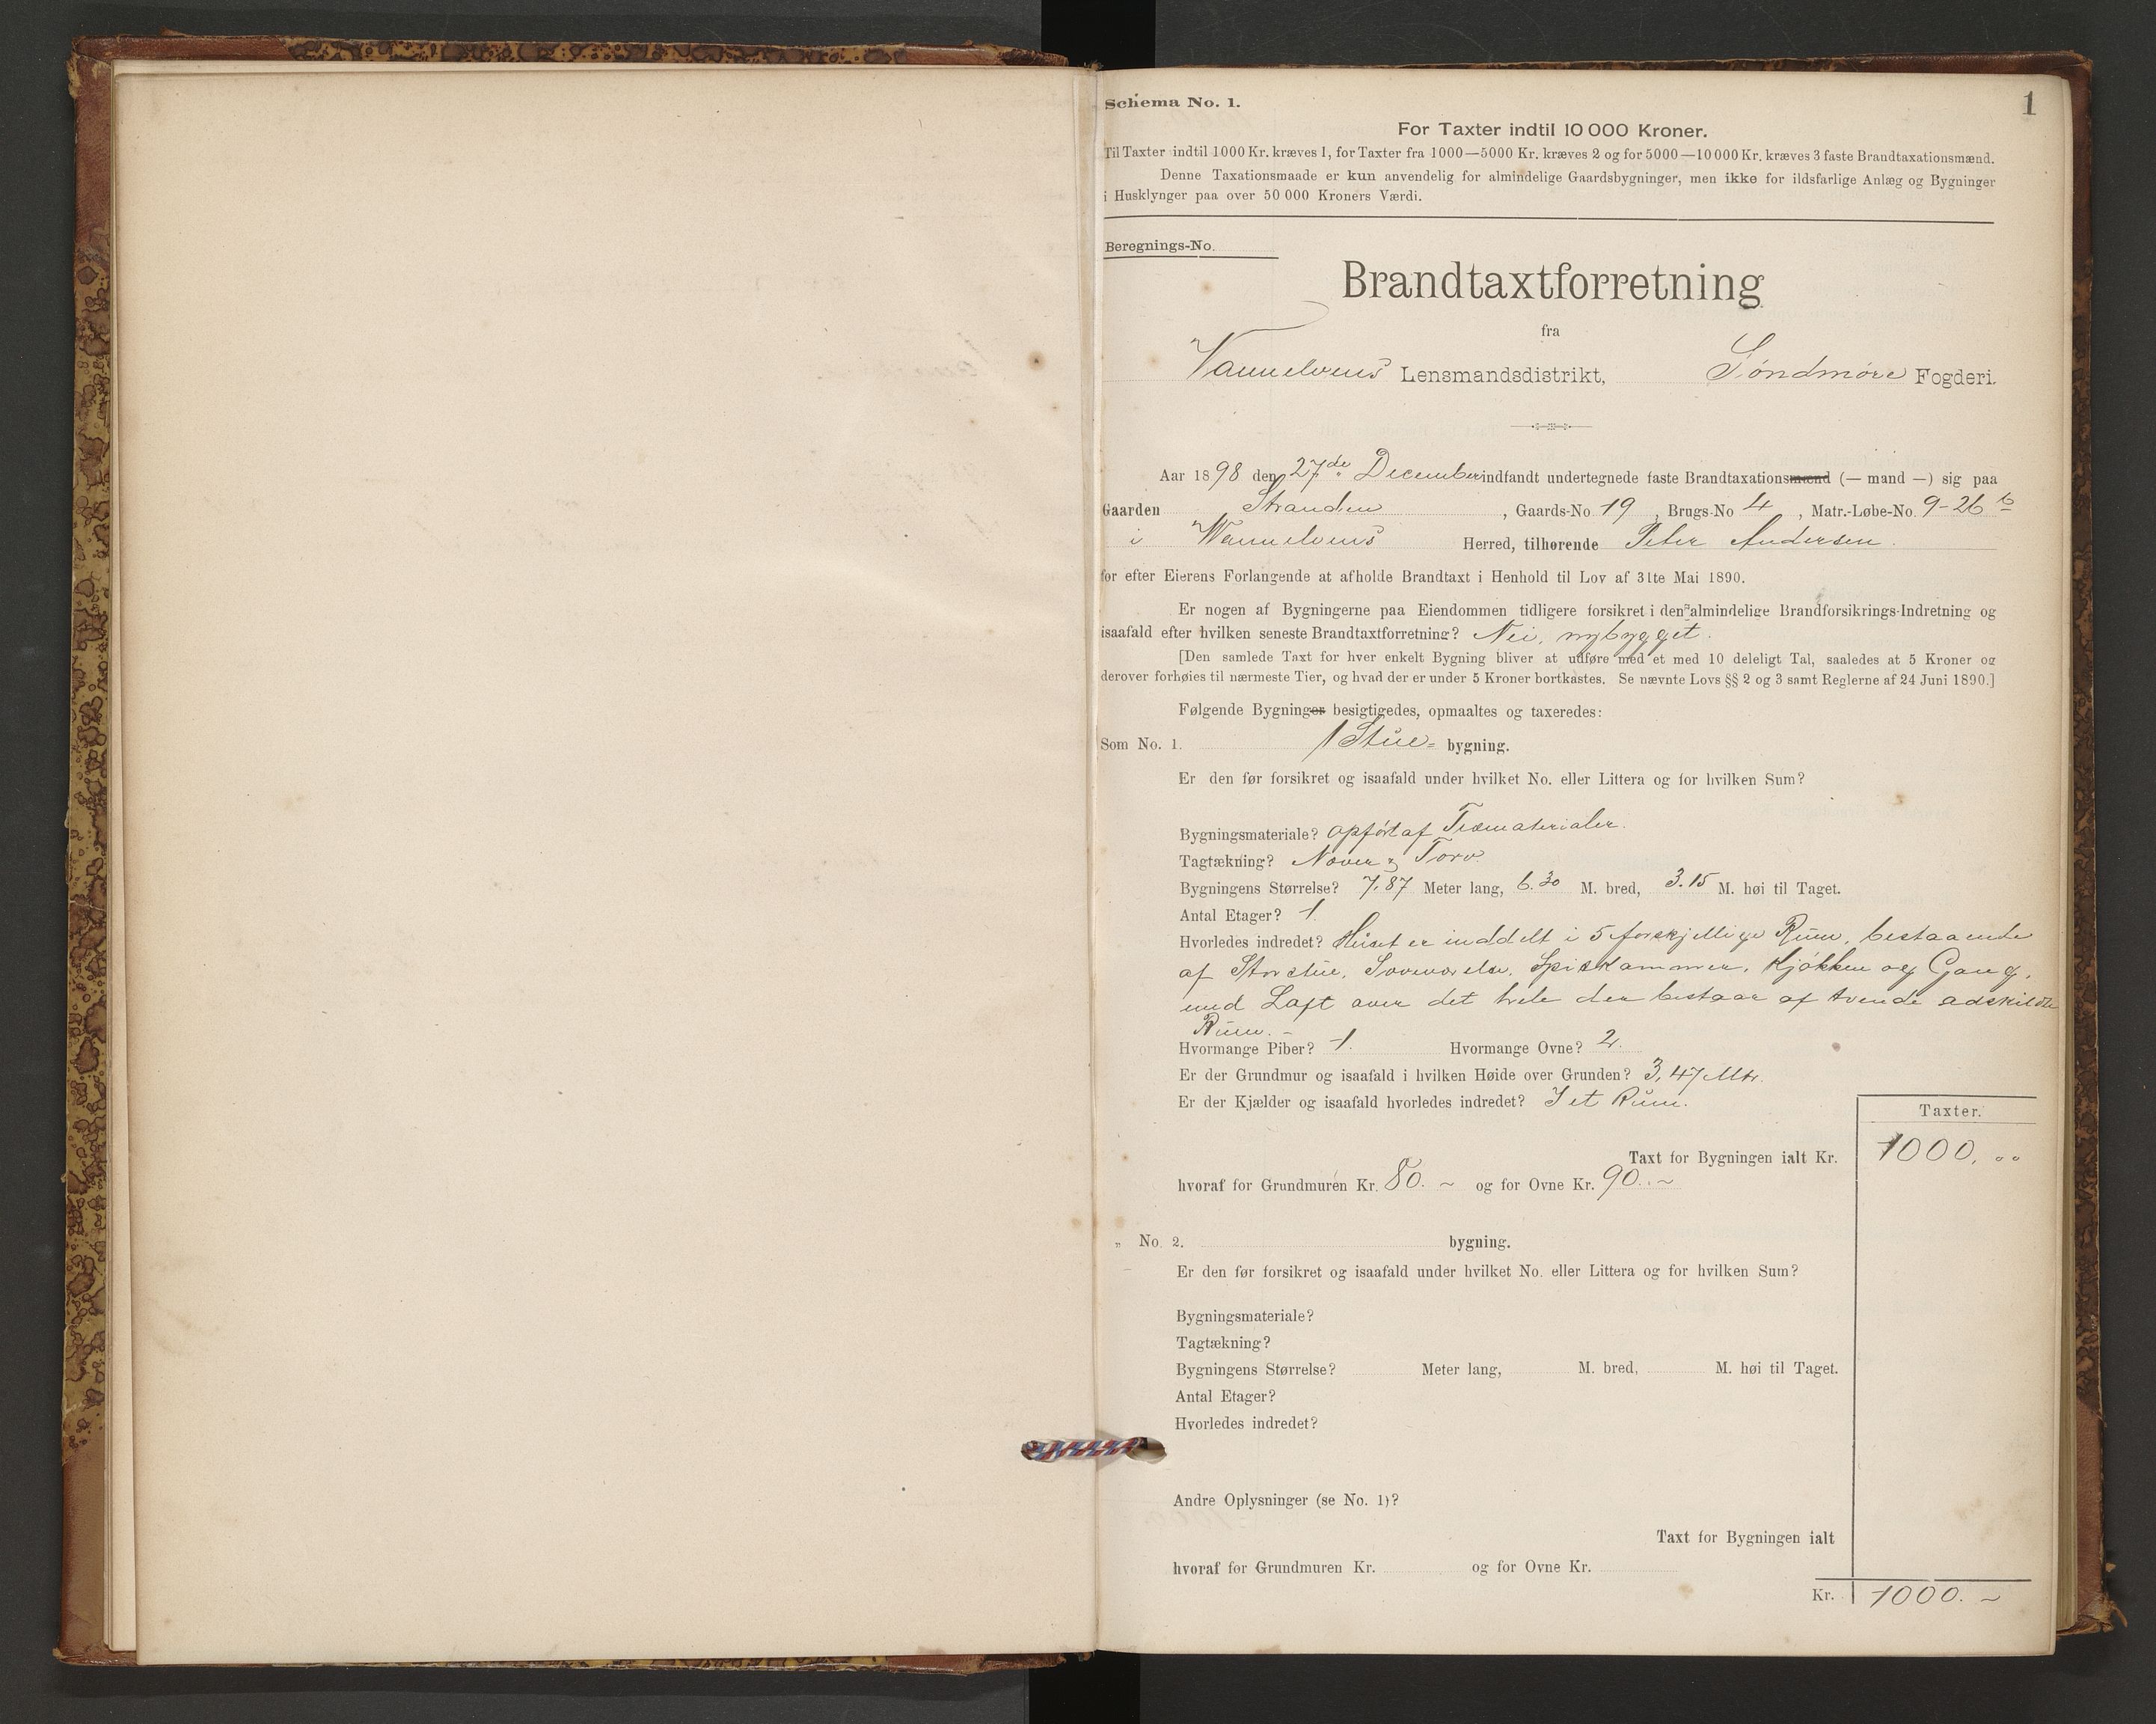 1
Schema No. 1.
For Taxter indtil 10 000 Kroner.
Til Taxter indtil 1000 Kr. kræves 1, for Taxter fra 1000—5000 Kr. kræves 2 og for 5000—10 000 Kr. kræves 3 faste Brandtaxationsmænd.
Denne Taxationsmaade er kun anvendelig for almindelige Gaardsbygninger, men ikke for ildsfarlige Anlæg og Bygninger
i Husklynger paa over 50 000 Kroners Værdi.
Beregnings-No.
Brandtaxtforretning
fra
Vannelvens Lensmandsdistrikt, Søndmøre Fogderi.
Aar 1898 den 27de December indfandt undertegnede faste Brandtaxationsmænd (— mand —) sig paa
Gaarden Stranden, Gaards-No. 19, Brugs-No 4, Matr.-Løbe-No. 9-26 b
i Wannelvens Herred, tilhørende Peter Andersen.
for efter Eierens Forlangende at afholde Brandtaxt i Henhold til Lov af 31te Mai 1890.
Er nogen af Bygningerne paa Eiendommen tidligere forsikret i den almindelige Brandforsikrings-Indretning og
isaafald efter hvilken seneste Brandtaxtforretning? Nei, nybygget.
[Den samlede Taxt for hver enkelt Bygning bliver at udføre med et med 10 deleligt Tal, saaledes at 5 Kroner og
derover forhøies til nærmeste Tier, og hvad der er under 5 Kroner bortkastes. Se nævnte Lovs §§ 2 og 3 samt Reglerne af 24 Juni 1890.]
Følgende Bygninger besigtigedes, opmaaltes og taxeredes:
Som No. 1. 1 Stue- bygning.
Er den før forsikret og isaafald under hvilket No. eller Littera og for hvilken Sum?
Bygningsmateriale? opført af Træmaterialer.
Tagtækning? Næver og Torv
Bygningens Størrelse? 7.87 Meter lang, 6.30 M. bred, 3.15 M. høi til Taget.
Antal Etager? 1.
Hvorledes indredet? Huset er inddelt i 5 forskjellige Rum, bestaaende
af Storstue, Soveværelse, Spiskammer, Kjøkken og Gang,
med Loft over det hele der bestaar af tvende adskildte
Rum. -
Hvormange Piber? 1. Hvormange Ovne? 2.
Er der Grundmur og isaafald i hvilken Høide over Grunden? 3,47 Mtr.
Er der Kjælder og isaafald hvorledes indredet? I et Rum.
Taxter.
Taxt for Bygningen ialt Kr. 1000. 00
hvoraf for Grundmuren Kr. 80. ~ og for Ovne Kr. 90. ~
„ No. 2. bygning.
Er den før forsikret og isaafald under hvilket No. eller Littera og for hvilken Sum?
Bygningsmateriale?
Tagtækning?
Bygningens Størrelse? Meter lang, M. bred, M. høi til Taget.
Antal Etager?
Hvorledes indredet?
Andre Oplysninger (se No. 1)?
Taxt for Bygningen ialt
hvoraf for Grundmuren Kr. og for Ovne Kr.
Kr. 1000. ~